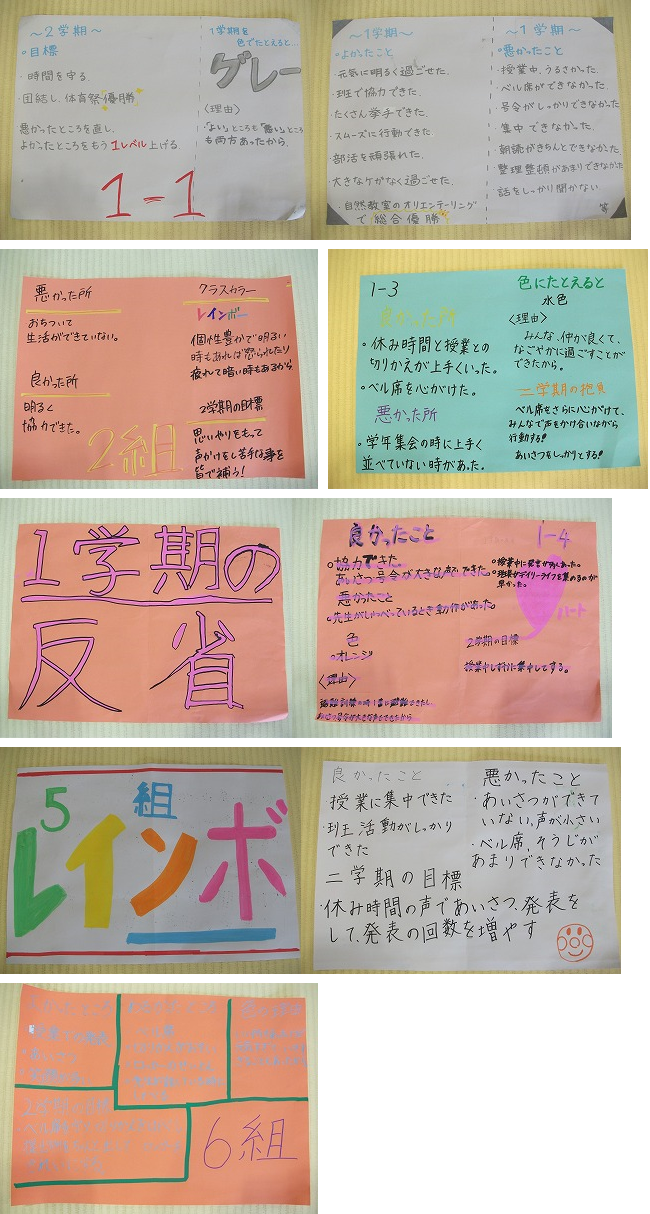 ～2学期～
○目標
・時間を守る.
・団結し、体育祭優勝
悪かったところを直し、
よかったところをもう1レベル上げる.
1-1
1学期を
色でたとえると…
グレー
〈理由〉
・「よい」ところも「悪い」ところ
も両方あったから.
～1学期～
○よかったこと
・元気に明るく過ごせた.
・班で協力できた.
・たくさん挙手できた.
・スムーズに行動できた.
・部活を頑張れた.
・大きなケガなく過ごせた.
・自然教室のオリエンテーリング
で総合優勝
～1学期～
○悪かったこと
・授業中、うるさかった.
・ベル席ができなかった.
・号令がしっかりできなかった
・集中できなかった.
・朝読がきちんとできなかった
・整理整頓があまりできなかった
・話をしっかり聞かない
等
悪かった所
おちついて
生活ができていない。
良かった所
明るく
協力できた。
2組
クラスカラー
レインボー
個性豊かで明るい
時もあれば怒られたり
疲れて暗い時もあるから
2学期の目標
思いやりをもって
声かけをし苦手な事を
皆で補う!
1-3
良かった所
○休み時間と授業との
切りかえが上手くいった。
○ベル席を心がけた。
悪かった所
○学年集会の時に上手く
並べていない時があった。
色にたとえると
水色
〈理由〉
みんな、仲が良くて、
なごやかに過ごすことが
できたから。
二学期の抱負
ベル席をさらに心がけて、
みんなで声をかけ合いながら
行動する!!
あいさつをしっかりとする!!
1学期の
反省
良かったこと
○協力できた
あいさつ号令が大きな声でできた
悪かったこと
○先生がしゃべっているとき動作があった。
色
○オレンジ
〈理由〉
1-4
○授業中に発言が多くあった。
ハート
2学期の目標
授業中しずかに集中してする。
5組
レインボ
良かったこと
授業に集中できた
・班活動がしっかり
できた
悪かったこと
・あいさつができて
いない、声が小さい
・ベル席、そうじが
あまりできなかった
二学期の目標
・休み時間の声であいさつ、発表を
して、発表の回数を増やす
6組